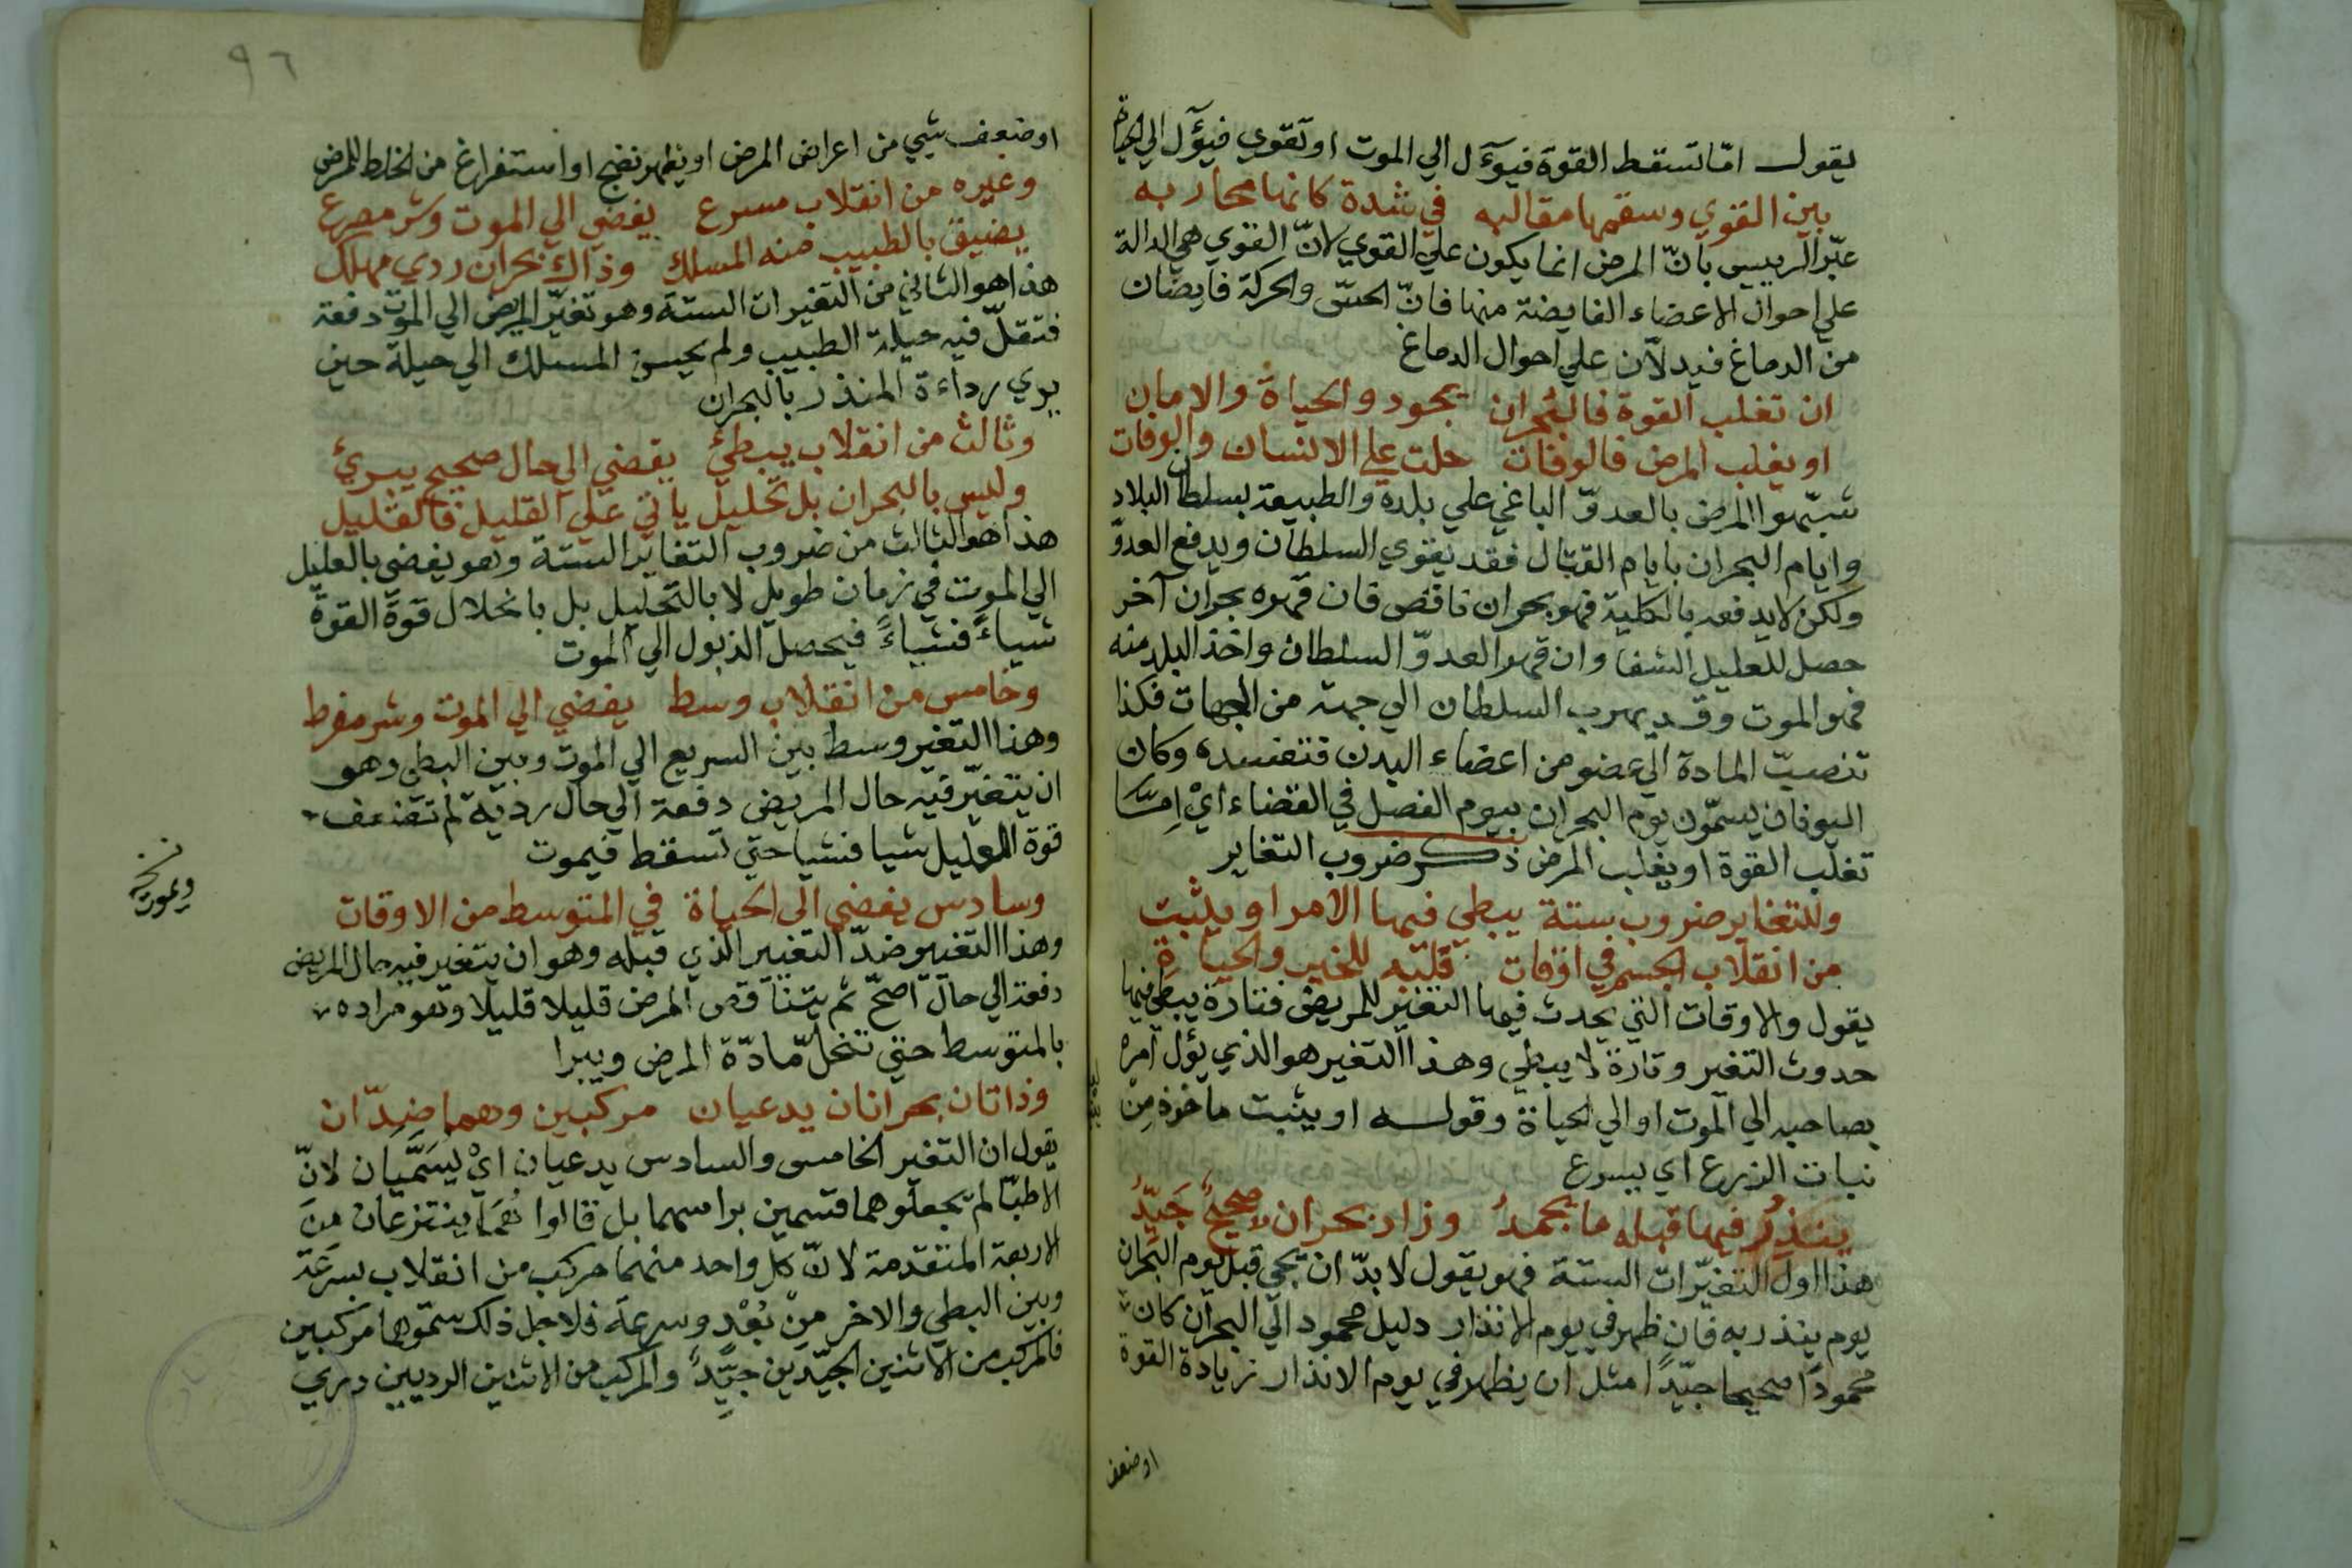 يقول امّا تسقط القوة فيؤل الي الموت او تقوي فيؤل الي الحياة
بين القوي وسقمها مقالبه في شدة كانها محاربه
عبّر الرييس بانّ المرض انما يكون علي القوي لانّ القوي هي الدالة
علي احوال الاعضاء الفايضة منها فانّ الحسّ والحركة فايضان
من الدماغ فيدلاّن علي احوال الدماغ
ان تغلب القوة فالبحران يجود والحياة والامان
او يغلب المرض فالوفات حلت علي الانسان والوفات
شبّهوا المرض بالعدوّ الباغي علي بلدة والطبيعة بسلطان البلاد
وايام البحران بايام القتال فقد يقوي السلطان ويدفع العدوّ
ولكن لا يدفعه بالكلية فهو بحران ناقص فان قهره بحران آخر
حصل للعليل الشفا وان قهر العدوّ السلطان واخذ البلد منه
فهو الموت وقد يهرب السلطان الي جهة من الجهات فكذا
تنصبّ المادة الي عضو من اعضاء البدن فتفسده وكان
اليونان يسمّون يوم البحران بيوم الفصل في القضاء ايْ اِمّا
تغلب القوة او يغلب المرض ذكر ضروب التغاير
وللتغاير ضروب ستة يبطي فيها الامر او يثبت
من انقلاب الجسم في اوقات قلبه للخير والحياة
يقول والاوقات التي يحدث فيها التغير للمريض فتارة يبطي فيها
حدوث التغير وتارة لا يبطي وهذا التغير هو الذي يؤل امره
بصاحبه الي الموت او الي الحياة وقوله او يثبت ماخوذ مِنْ
نبات الزرع اي يسرع
ينذرُ فيها قبله ما يحمدُ وزاد بحران صحيحٌ جَيّدُ
هذا اول التغيّرات الستة فهو يقول لا بدّ ان يجي قبل يوم البحران
يوم ينذر به فان ظهر في يوم الانذار دليل محمود الي البحران كان
محموداً صحيحا جيّداً مثل ان يظهر في يوم الانذار زيادة القوة
او ضعف
٩٦
او ضعف شيي من اعراض المرض او يظهر نضج او استفراغ من الخلط الممرض
وغيره من انقلاب مسرع يفضي الي الموت وشر مصرع
يضيق بالطبيب منه المسلك وذاك بحران ردي مهلك
هذا هو الثاني من التغيرات الستة وهو تغيّر المريض الي الموت دفعة
فتقلّ فيه حيلة الطبيب ولم يحسن المسلك الي حيلة حين
يري رداءة المنذر بالبحران
وثالث من انقلاب يبطئ يقضي الي حال صحيح يبرئ
وليس بالبحران بل تحليل ياتي علي القليل فالقليل
هذا هو الثالث من ضروب التغاير الستة وهو يفضي بالعليل
الي الموت في زمان طويل لا بالتحليل بل بانحلال قوة القوة
شياءً فشياءً فيحصل الذبول الي الموت
وخامس من انقلاب وسط يفضي الي الموت وشر مفرط
وهذا التغير وسط بين السريع الي الموت وبين البطي وهو
ان يتغيّر فيه حال المريض دفعة الي حال ردية ثم تضعف
قوة العليل شيا فشيا حتي تسقط فيموت
نسخة
ويموت
وسادس يفضي الي الحياة في المتوسط من الاوقات
وهذا التغير ضدّ التغيير الذي قبله وهو ان يتغير فيه حال المريض
دفعة الي حال اصحّ ثم يتناقص المرض قليلا قليلا وهو مراده
بالمتوسط حتي تنحلّ مادّة المرض ويبرا
وذانان بحرانان يدعيان مركبين وهما ضدّان
يقول ان التغير الخامس والسادس يدعيان ايْ يُسَمَّيان لانّ
الاطبّا لم يجعلوهما قسمين براسهما بل قالوا هُمَا ينتزعان مِنَ
الاربعة المتقدمة لانّ كل واحد منهما مركب من انقلاب بسرعَة
وبين البطي والاخر مِنْ بُعْدٍ وسرعة فلاجل ذلك سمّوهما مركبين
فالمركب من الاثنين الجيّدين جيّدٌ والمركب من الاثنين الرديين ردي